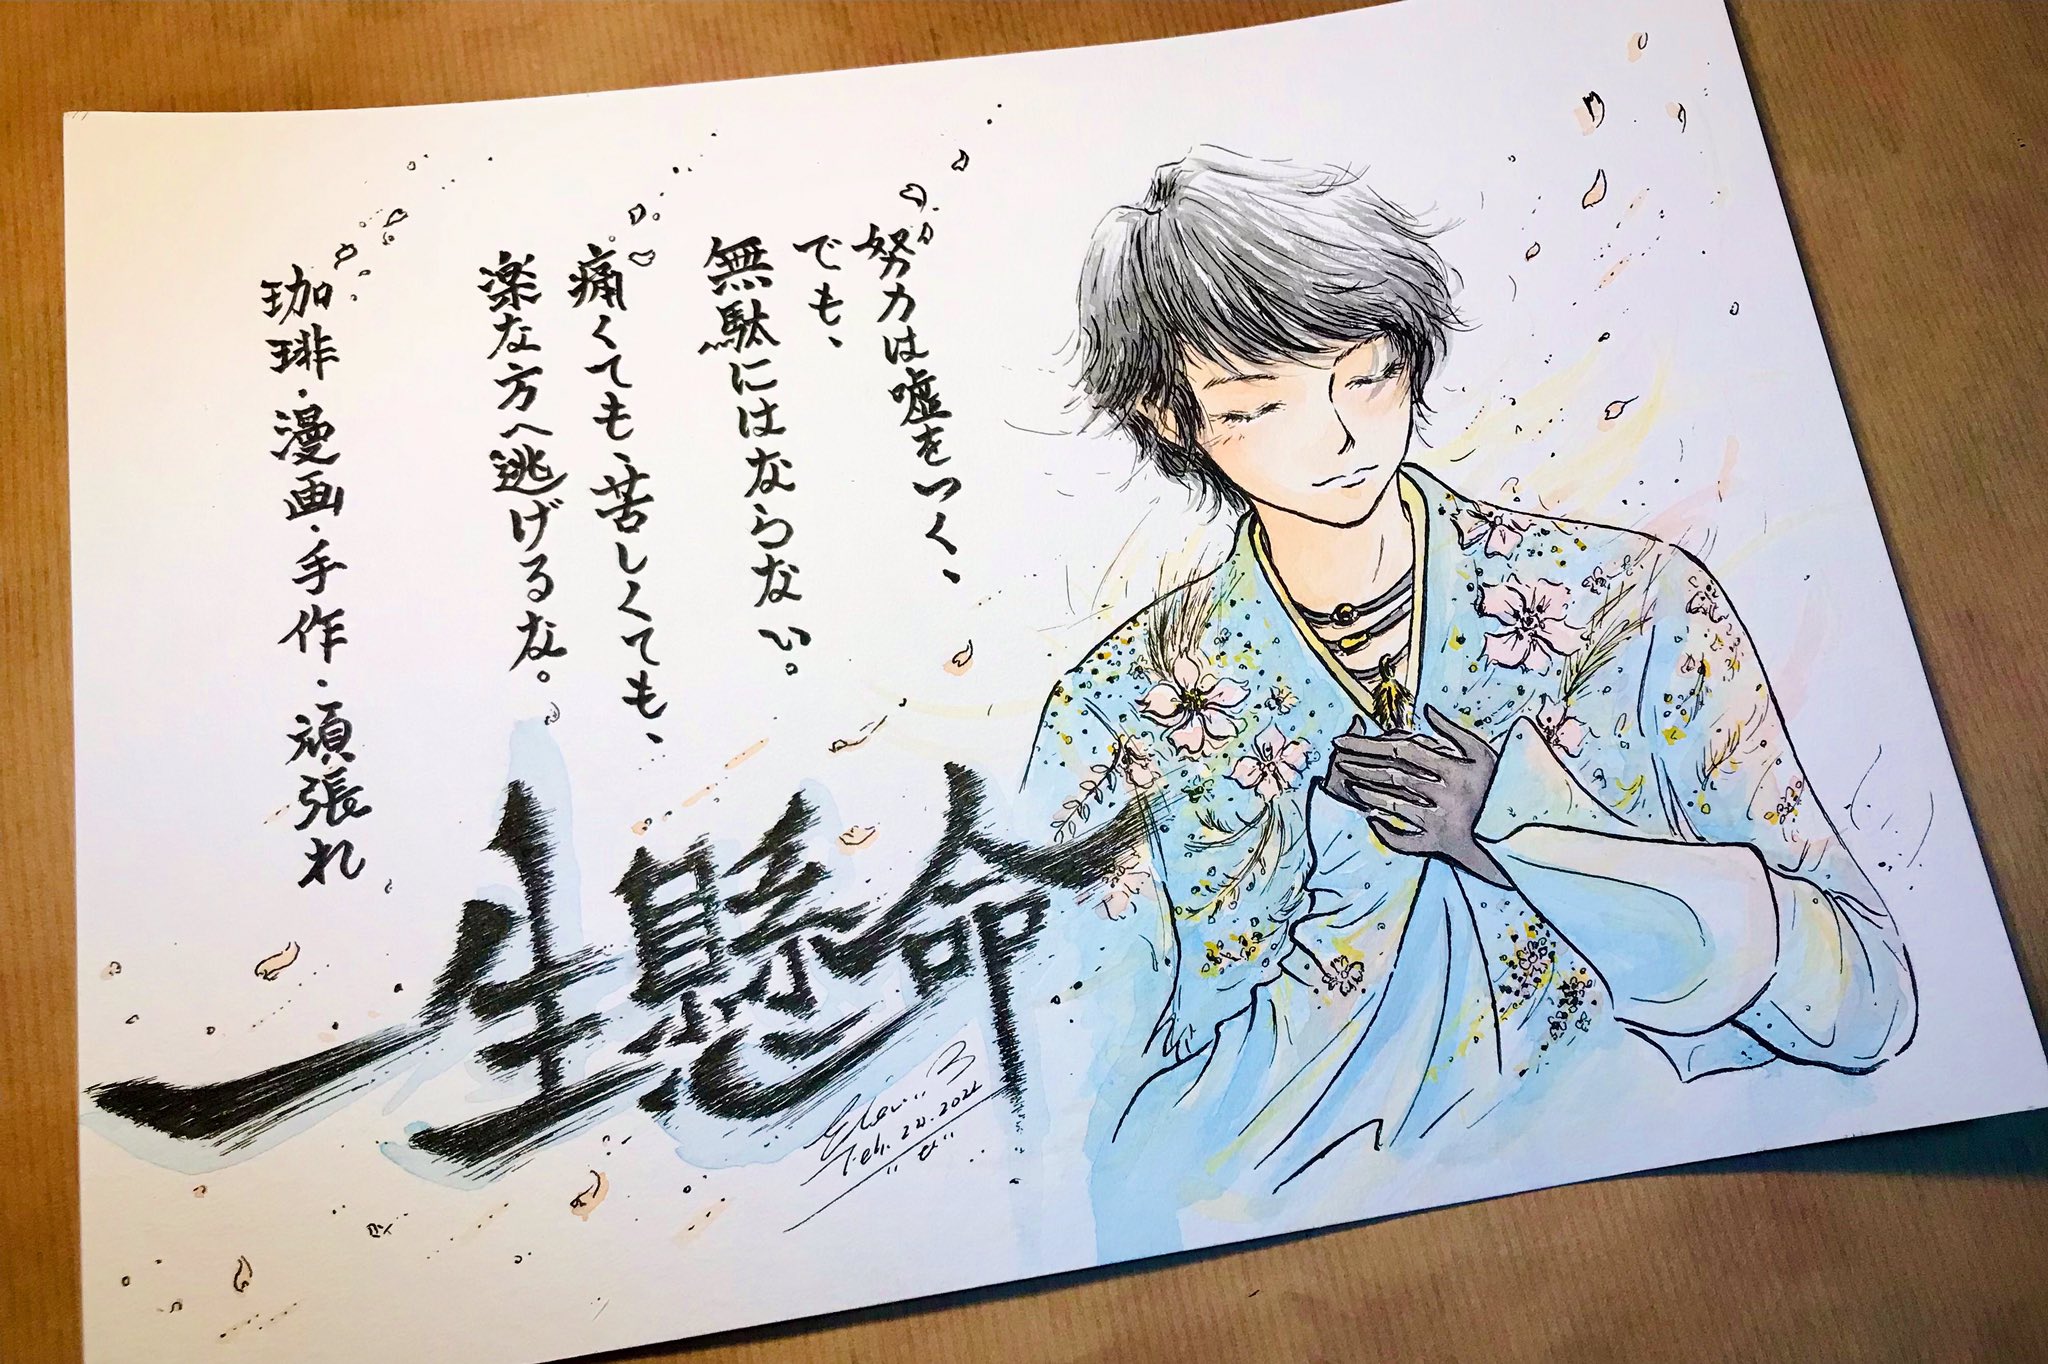 努力は嘘をつく、
でも、
無駄にはならない。
痛くても、苦しくても、
楽な方へ逃げるな。
珈琲・漫画・手作・頑張れ
一生懸命
Feb.22.2022